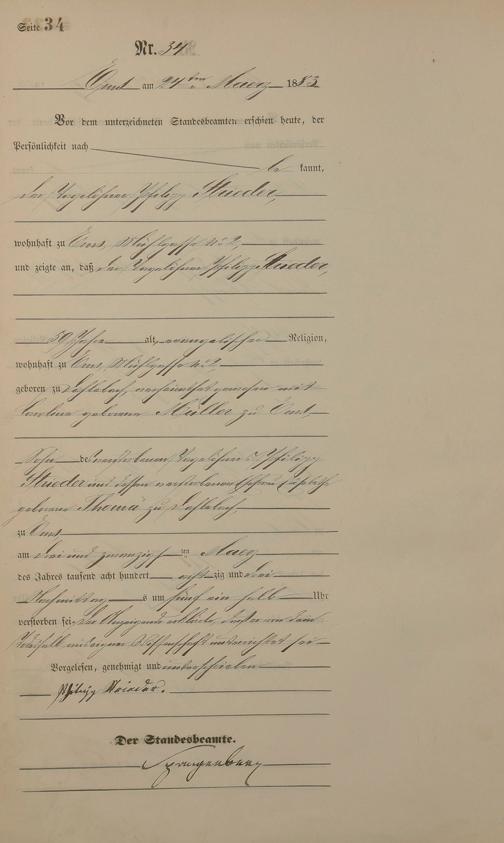 Seite 34
Nr. 34
Ems am 24ten Maerz 1883
Vor dem unterzeichneten Standesbeamten erschien heute, der
Persönlichkeit nach
be kannt,
der Tagelöhner Philipp Strieder,
wohnhaft zu Ems,
und zeigte an, daß der Tagelöhner Philipp Strieder,
59 Jahre alt, evangelischer Religion,
wohnhaft zu Ems,
geboren zu verheirathet gewesen mit
geborene Müller zu Ems,
Sohn des verstorbenen Tagelöhners Philipp
Strieder und dessen verstorbenen Ehefrau
geborene Thomä zu
zu Ems
am drei und zwanzigsten Maerz
des Jahres tausend acht hundert achtzig und drei
Nachmittags um fünf ein halb Uhr
verstorben sei, der Anzeigende erklärte, daß er von dem
Sterbfall aus eigener Wissenschaft unterrichtet sei
Vorgelesen, genehmigt und unterschrieben
Philipp Strieder.
Der Standesbeamte.
Spangenberg